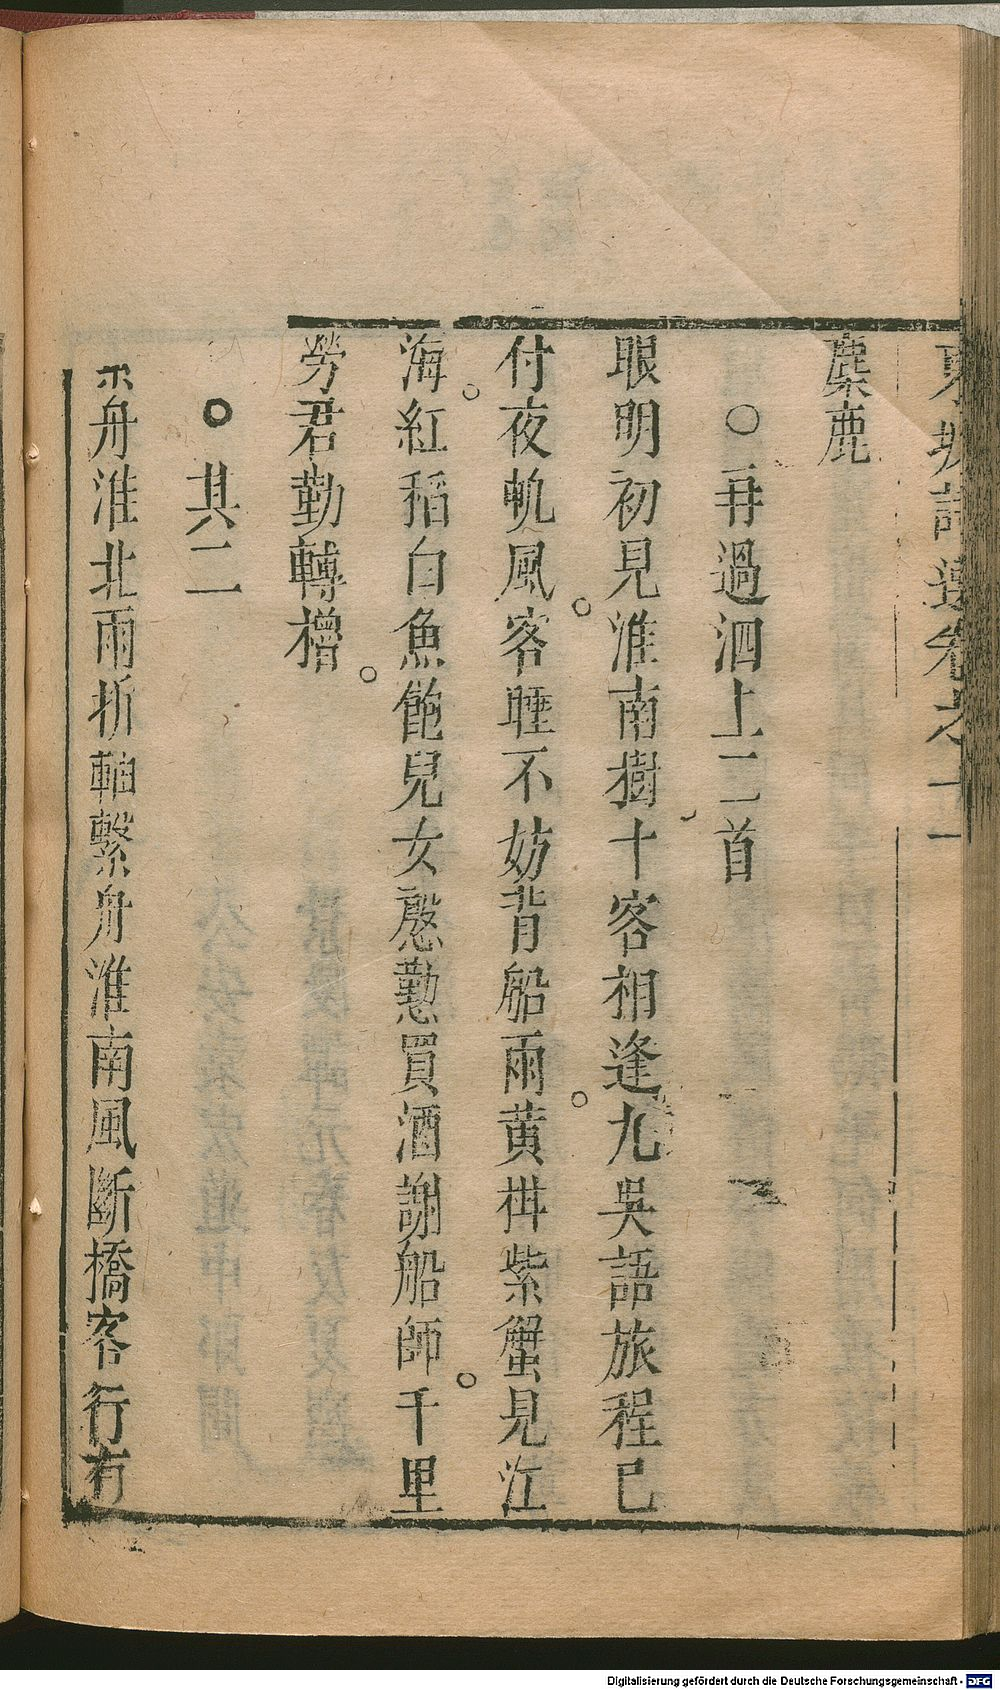 東坡詩選卷之十一
麋鹿
○再過泗上二首
眼明初見淮南樹十客相逢九吳語旅程已
付夜帆風客睡不妨背船雨黃柑紫蟹見江
海紅稻白魚飽兒女慇懃買酒謝船師千里
勞君勤轉櫓
○其二
舟淮北雨折軸繫舟淮南風斷橋客行有
Digitalisierung gefördert durch die Deutsche Forschungsgemeinschaft - DFG